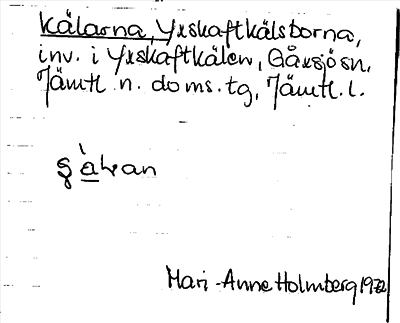 Kälarna, Yxskaftkälsborna,
inv. i Yxskaftkälen, Gåxsjö sn,
Jämtl. n. doms. tg, Jämtl. l.
Mari-Anne Holmberg 1972